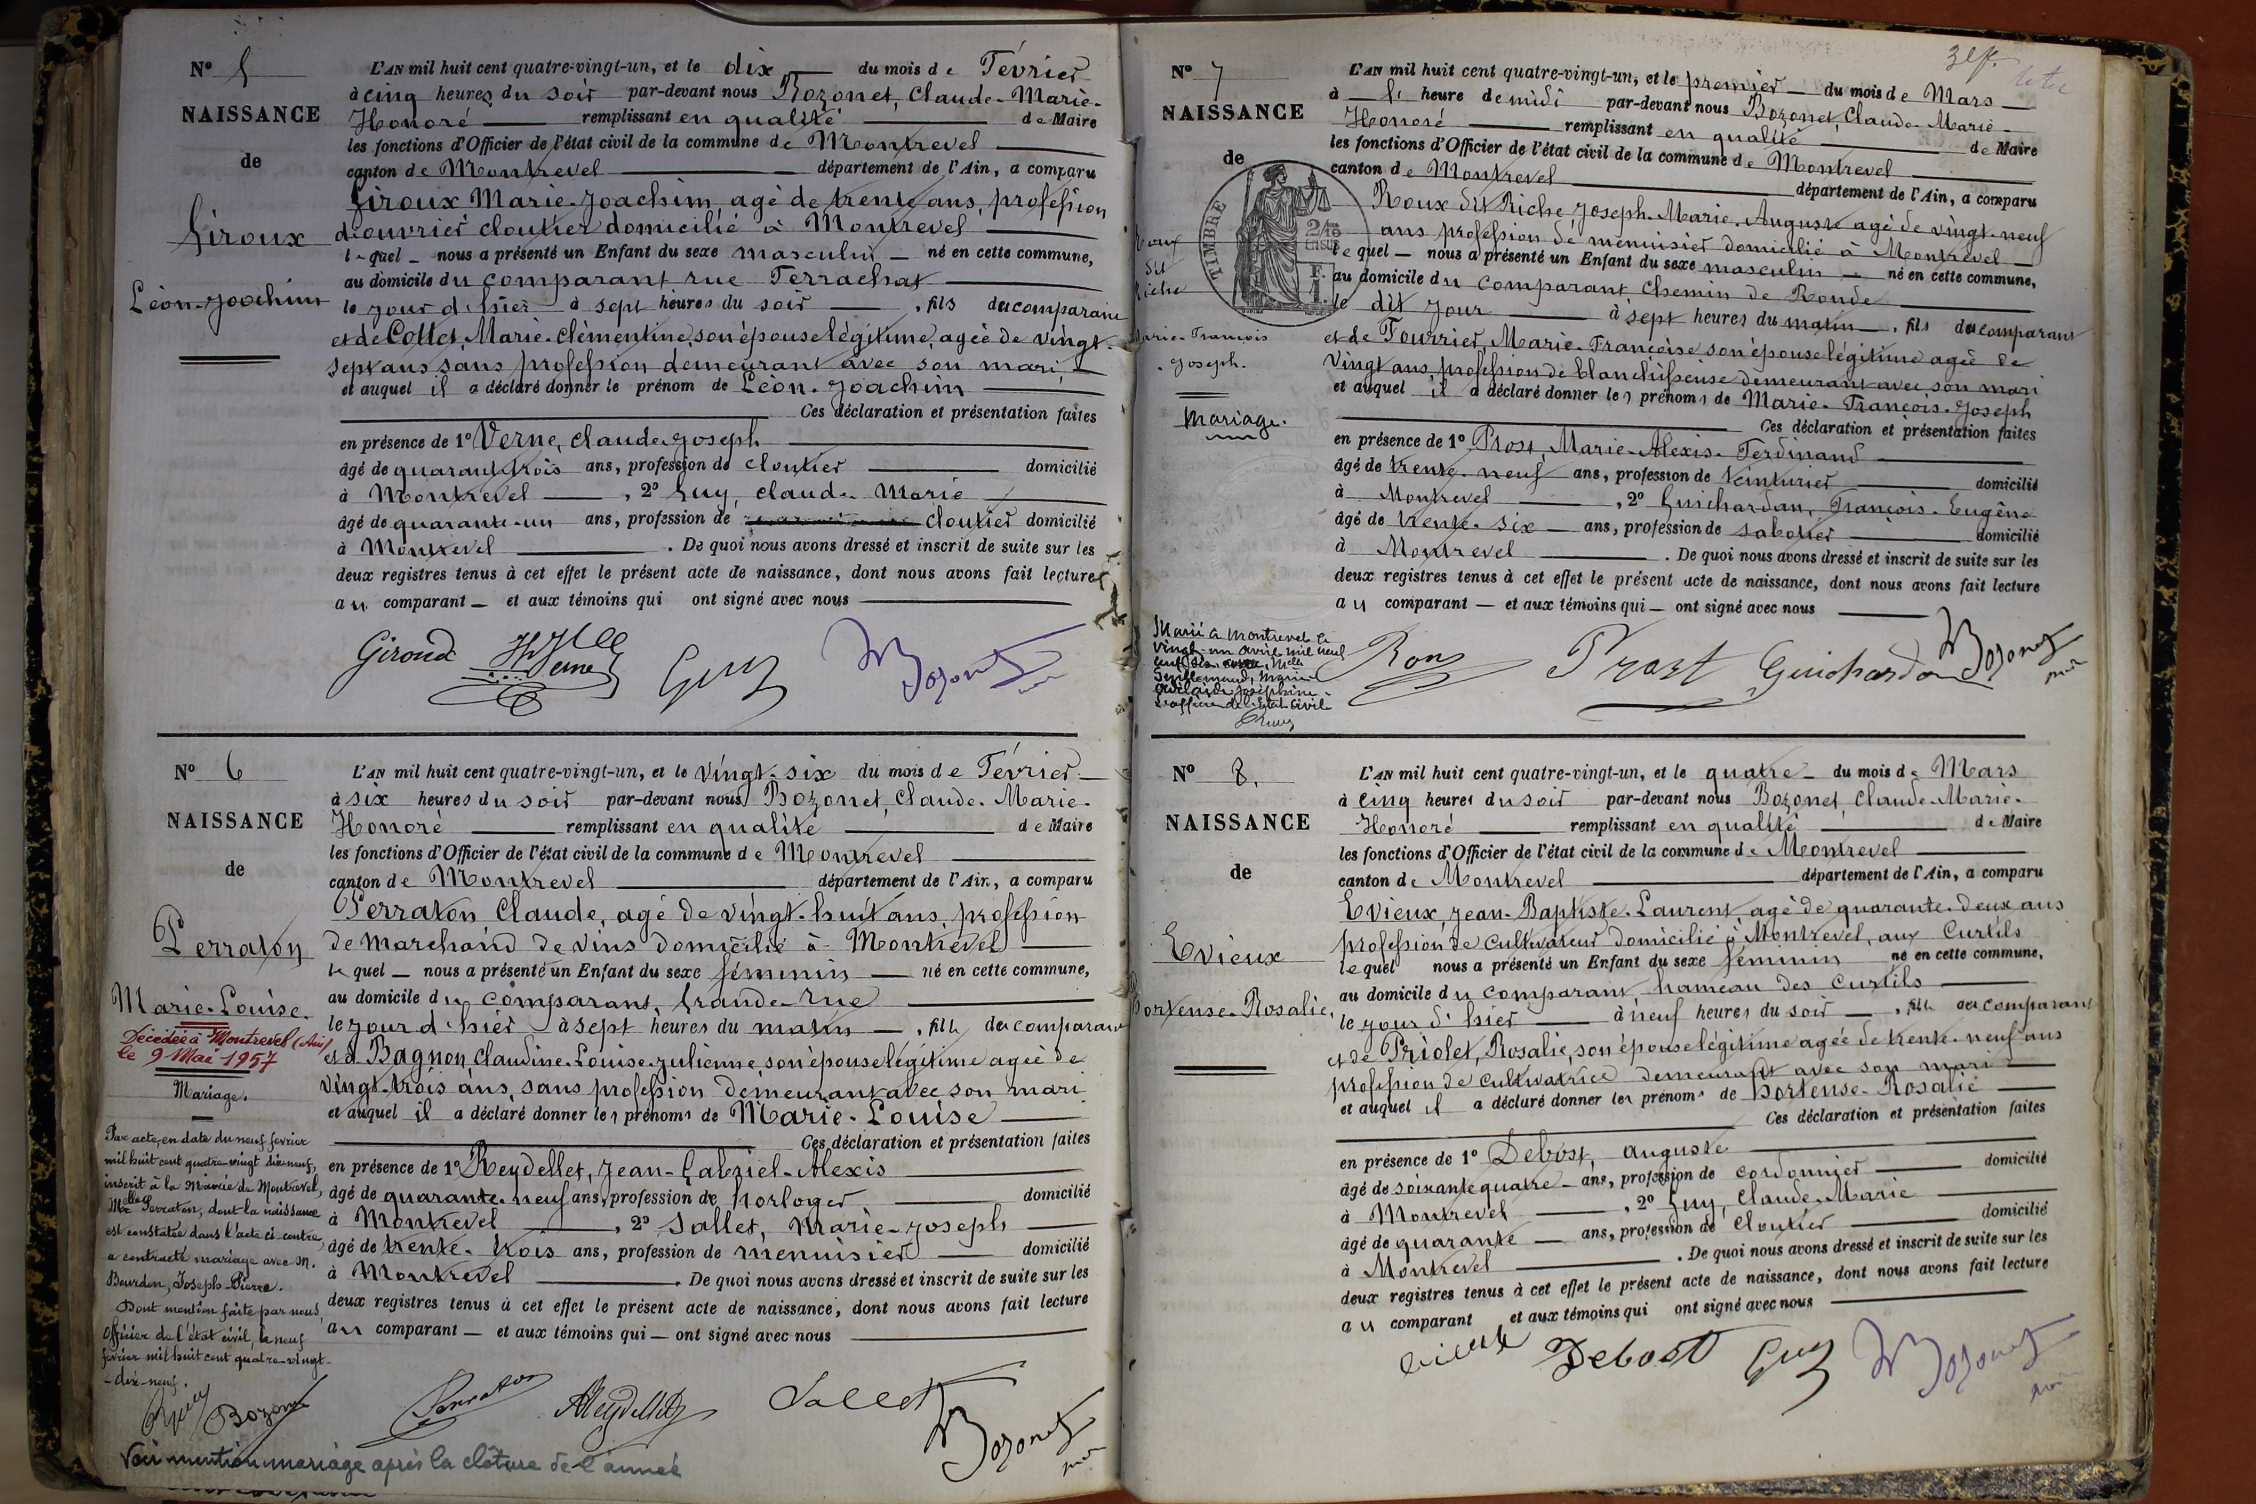 N° 5
NAISSANCE
de
Giroux
Léon-Joachim
L'AN mil huit cent quatre-vingt-un, et le dix du mois de Février
à cinq heures du soir par-devant nous Bozonet, Claude-Marie-
Honoré remplissant en qualité de Maire
les fonctions d'Officier de l'état civil de la commune de Montrevel
canton de Montrevel département de l'Ain, a comparu
Giroux Marie-Joachim, agé de trente ans, profession
d'ouvrier cloutier domicilié à Montrevel
lequel nous a présenté un Enfant du sexe masculin né en cette commune,
au domicile du comparant rue Ferrachat
le jour d'hier à sept heures du soir, fils du comparant
et de Collet, Marie-Clémentine, son épouse légitime, agée de vingt-
sept ans sans profession demeurant avec son mari,
et auquel il a déclaré donner le prénom de Léon-Joachim
Ces déclaration et présentation faites
en présence de 1° Verne, Claude-Joseph
âgé de quarante trois ans, profession de cloutier domicilié
à Montrevel, 2° Guy, Claude-Marie
âgé de quarante-un ans, profession de cloutier domicilié
à Montrevel. De quoi nous avons dressé et inscrit de suite sur les
deux registres tenus à cet effet le présent acte de naissance, dont nous avons fait lecture
au comparant et aux témoins qui ont signé avec nous
Giroud Verne Guy Bozonet
N° 6
NAISSANCE
de
Perraton
Marie-Louise.
Décédée à Montrevel (Ain)
le 9 Mai 1957
Mariage.
Par acte, en date du neuf février
mil huit cent quatre-vingt dix-neuf,
inscrit à la Mairie de Montrevel,
Melle Perraton, dont la naissance
est constatée dans l'acte ci-contre,
a contracté mariage avec M.
Bourdon, Joseph-Pierre.
Dont mention faite par nous,
Officier de l'état civil, le neuf
février mil huit cent quatre-vingt-
-dix-neuf.
Bozonet
L'AN mil huit cent quatre-vingt-un, et le vingt-six du mois de Février
à six heures du soir par-devant nous Bozonet, Claude-Marie-
Honoré remplissant en qualité de Maire
les fonctions d'Officier de l'état civil de la commune de Montrevel
canton de Montrevel département de l'Ain, a comparu
Perraton Claude, agé de vingt-huit ans, profession
de marchand de vins domicilié à Montrevel
lequel nous a présenté un Enfant du sexe féminin né en cette commune,
au domicile du comparant, Grande-rue
le jour d'hier à sept heures du matin, fille du comparant
et de Bagnon, Claudine-Louise-Julienne, son épouse légitime agée de
vingt-trois ans, sans profession demeurant avec son mari
et auquel il a déclaré donner les prénoms de Marie-Louise
Ces déclaration et présentation faites
en présence de 1° Reydellet, Jean-Gabriel-Alexis
âgé de quarante-neuf ans, profession de horloger domicilié
à Montrevel, 2° Sallet, Marie-Joseph
âgé de trente-trois ans, profession de menuisier domicilié
à Montrevel. De quoi nous avons dressé et inscrit de suite sur les
deux registres tenus à cet effet le présent acte de naissance, dont nous avons fait lecture
au comparant et aux témoins qui ont signé avec nous
Perraton AReydellet Sallet Bozonet
Voir mention mariage après la clôture de l'année
N° 7
NAISSANCE
de
TIMBRE
Roux
dit
Riche
Marie-François
-Joseph.
Mariage.
Marié à Montrevel le
vingt-un avril mil neuf
L'officier de l'Etat Civil
L'AN mil huit cent quatre-vingt-un, et le premier du mois de Mars
à heure de midi par-devant nous Bozonet, Claude-Marie-
Honoré remplissant en qualité de Maire
les fonctions d'Officier de l'état civil de la commune de Montrevel
canton de Montrevel département de l'Ain, a comparu
Roux dit Riche, Joseph-Marie-Auguste agé de vingt-neuf
ans profession de menuisier domicilié à Montrevel
lequel nous a présenté un Enfant du sexe masculin né en cette commune,
au domicile du comparant Chemin de Ronde
le dit jour à sept heures du matin, fils du comparant
et de Fourrier, Marie-Françoise son épouse légitime agée de
vingt ans, profession de blanchisseuse demeurant avec son mari
et auquel il a déclaré donner les prénoms de Marie-François-Joseph
Ces déclaration et présentation faites
en présence de 1° Prost, Marie-Alexis-Ferdinand
âgé de trente-neuf ans, profession de teinturier domicilié
à Montrevel, 2° Guichardan, François-Eugène
âgé de trente-six ans, profession de sabotier domicilié
à Montrevel. De quoi nous avons dressé et inscrit de suite sur les
deux registres tenus à cet effet le présent acte de naissance, dont nous avons fait lecture
au comparant et aux témoins qui ont signé avec nous
Roux Prost Guichardan Bozonet
N° 8.
NAISSANCE
de
Evieux
Hortense-Rosalie.
L'AN mil huit cent quatre-vingt-un, et le quatre du mois de Mars
à cinq heures du soir par-devant nous Bozonet, Claude-Marie-
Honoré remplissant en qualité de Maire
les fonctions d'Officier de l'état civil de la commune de Montrevel
canton de Montrevel département de l'Ain, a comparu
Evieux, Jean-Baptiste-Laurent, agé de quarante-deux ans
profession de cultivateur domicilié à Montrevel, aux Curtils
lequel nous a présenté un Enfant du sexe féminin né en cette commune,
au domicile du comparant, hameau des Curtils
le jour d'hier à neuf heures du soir, fille du comparant
et de Priolet, Rosalie, son épouse légitime agée de trente-neuf ans
profession de cultivatrice demeurant avec son mari
et auquel il a déclaré donner les prénoms de Hortense-Rosalie
Ces déclaration et présentation faites
en présence de 1° Debost, Auguste
âgé de soixante quatre ans, profession de cordonnier domicilié
à Montrevel, 2° Guy, Claude-Marie
âgé de quarante ans, profession de cloutier domicilié
à Montrevel. De quoi nous avons dressé et inscrit de suite sur les
deux registres tenus à cet effet le présent acte de naissance, dont nous avons fait lecture
au comparant et aux témoins qui ont signé avec nous
Evieux Debost Guy Bozonet